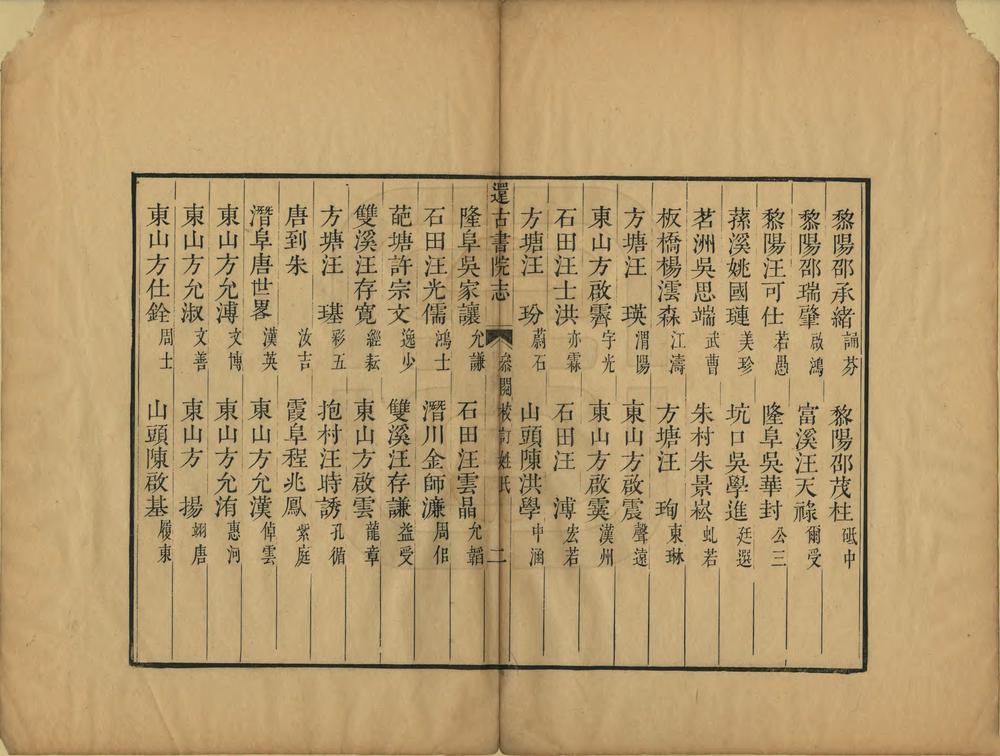 黎陽邵承緒 誦芬 黎陽邵茂柱 砥中
黎陽邵瑞肇 啟鴻 富溪汪天祿 爾受
黎陽汪可仕 若愚 隆阜吳華封 公三
蓀溪姚國璉 美珍 坑口吳學進 廷選
茗洲吳思端 武曹 朱村朱景崧 虬若
板橋楊澐森 江濤 方塘汪 珣 東琳
方塘汪 瑛 渭陽 東山方啟震 聲遠
東山方啟霽 宇光 東山方啟霙 漢州
石田汪士洪 亦霖 石田汪 溥 宏若
方塘汪 玢 蔚石 山頭陳洪學 中涵
還古書院志 叅閱校訂姓氏 二
隆阜吳家讓 允謙 石田汪雲晶 允韜
石田汪光儒 鴻士 潛川金師濂 周佀
葩塘許宗文 逸少 雙溪汪存謙 益受
雙溪汪存寬 經耘 東山方啟雲 龍章
方塘汪 璂 彩五 抱村汪時誘 孔循
唐到朱 汝吉 霞阜程兆鳳 紫庭
潛阜唐世畧 漢英 東山方允漢 倬雲
東山方允溥 文博 東山方允洧 惠河
東山方允淑 文善 東山方 揚 翊唐
東山方仕銓 周士 山頭陳啟基 履東